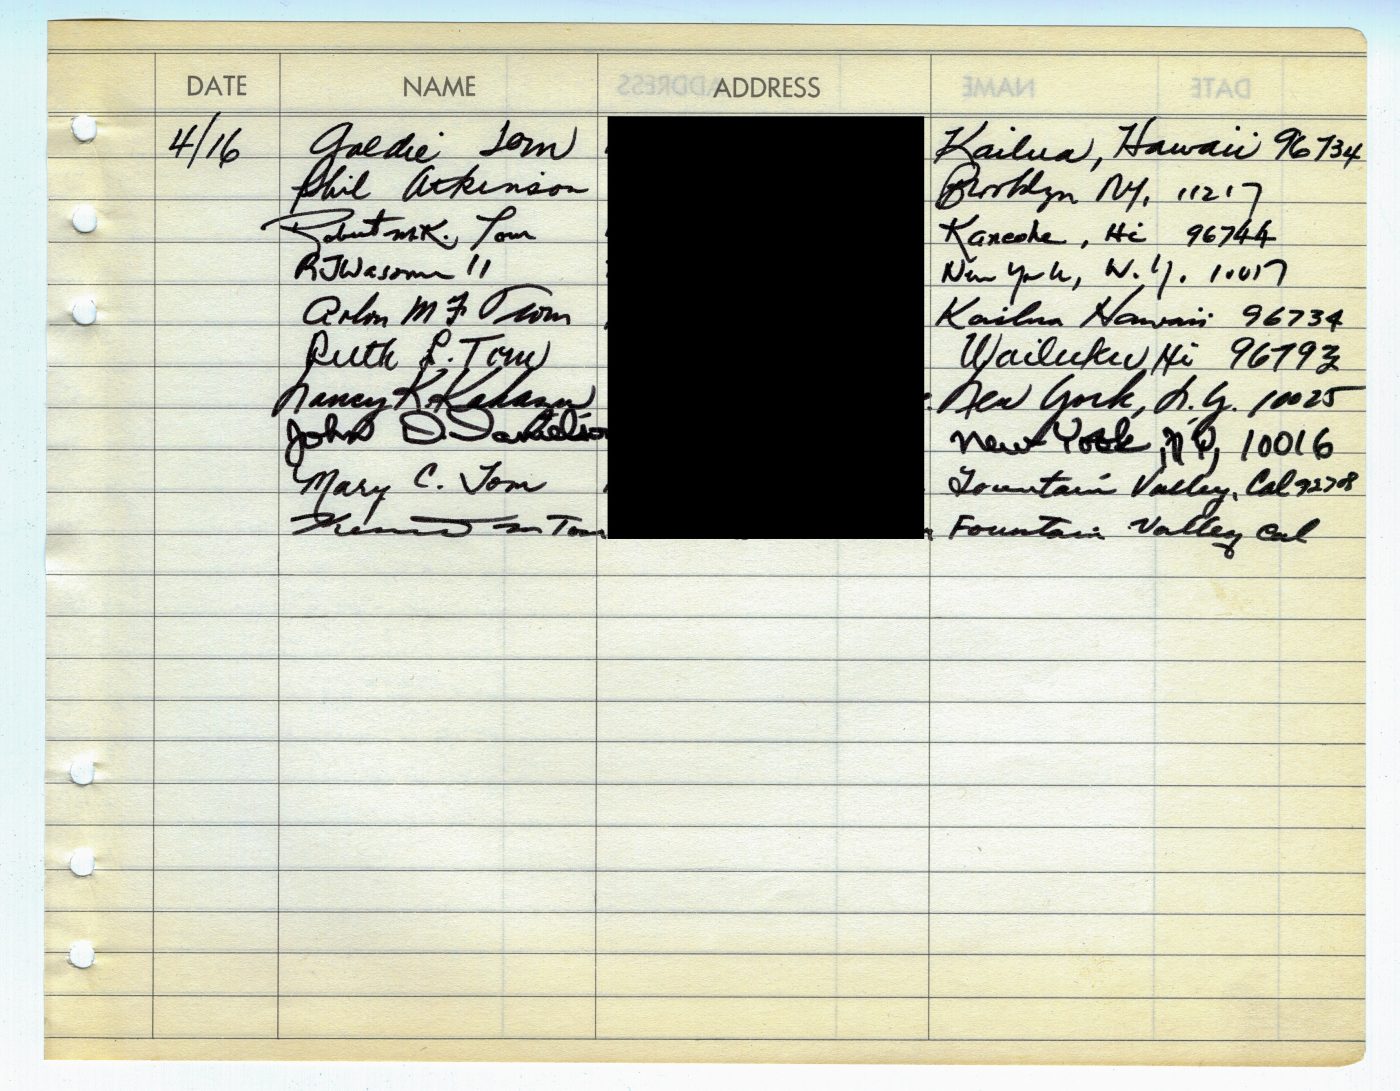 DATE NAME ADDRESS
4/16 Goldie Tom Kailua, Hawaii 96734
Phil Atkinson Brooklyn NY, 11217
Robert M.K. Tom Kaneohe, Hi 96744
RJWasoma II New York, N.Y. 10017
Arlon M F Tom Kailua Hawaii 96734
Ruth L. Tom Wailuku, Hi 96793
Nancy K. New York, N.Y. 10025
John D. Danielson New York, NY, 10016
Mary C. Tom Fountain Valley, Cal 92708
M Tom Fountain Valley Cal